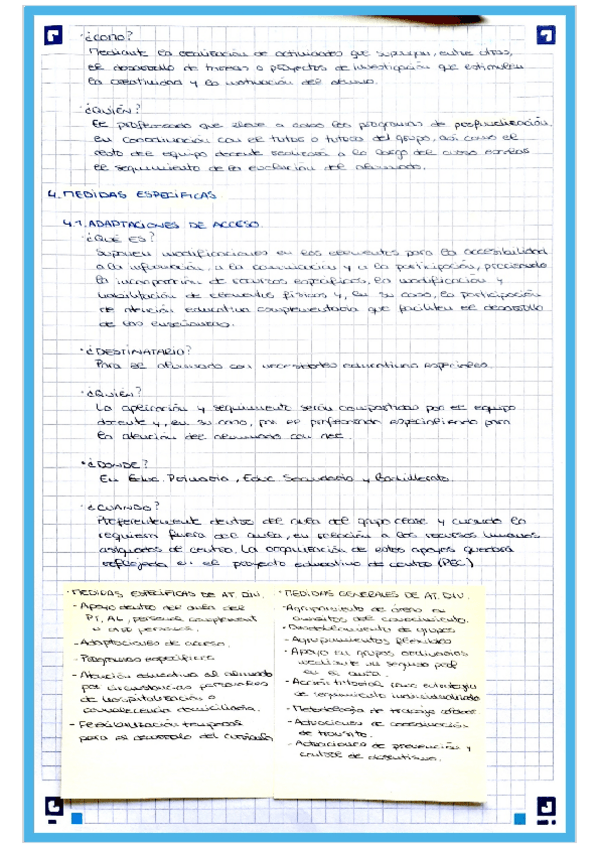 ¿CÓMO?
Mediante la realización de actividades que supongan, entre otras,
el desarrollo de tareas o proyectos de investigación que estimulen
la creatividad y la motivación del alumno.
¿QUIÉN?
El profesorado que lleve a cabo los programas de profundización,
en coordinación con el tutor o tutora del grupo, así como el
resto del equipo docente realizará a lo largo del curso escolar
el seguimiento de la evolución del alumnado.
4. MEDIDAS ESPECÍFICAS
4.1. ADAPTACIONES DE ACCESO
¿QUÉ ES?
Suponen modificaciones en los elementos para la accesibilidad
a la información, a la comunicación y a la participación, precisando
la incorporación de recursos específicos, la modificación y
habilitación de elementos físicos y, en su caso, la participación
de atención educativa complementaria que faciliten el desarrollo
de las enseñanzas.
· ¿DESTINATARIO?
Para el alumnado con necesidades educativas especiales.
¿QUIÉN?
La aplicación y seguimiento serán compartidas por el equipo
docente y, en su caso, por el profesorado especializado para
la atención del alumnado con nee.
· ¿DÓNDE?
En Educ. Primaria, Educ. Secundaria y Bachillerato.
¿CUÁNDO?
Preferentemente dentro del aula del grupo clase y cuando lo
requieran fuera del aula, en relación a los recursos humanos
asignados al centro. La organización de estos apoyos quedará
reflejada en el proyecto educativo de centro (PEC)
· MEDIDAS ESPECÍFICAS DE AT. DIV.
- Apoyo dentro del aula del
PT, AL, personal complement
u otro personal.
- Adaptaciones de acceso.
- Programas específicos
- Atención educativa al alumnado
por circunstancias personales
de hospitalización o
convalecencia domiciliaria.
- Flexibilización temporal
para el desarrollo del currículo
· MEDIDAS GENERALES DE AT. DIV.
- Agrupamiento de áreas en
ámbitos del conocimiento.
- Desdoblamiento de grupos
- Agrupamientos flexibles
- Apoyo en grupos ordinarios
mediante un segundo prof
en el aula.
- Acción tutorial como estrategia
de seguimiento individualizado
- Metodología de trabajo
- Actuaciones de coordinación
de tránsito.
- Actuaciones de prevención y
control de absentismo.